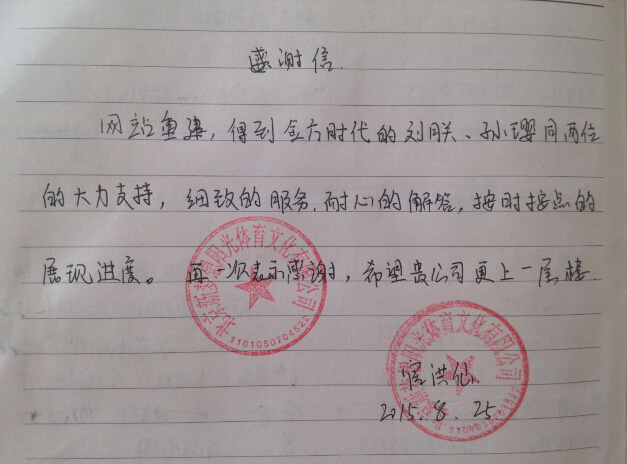 感谢信.
网站重建，得到金方时代的刘朕、孙璎同两位
的大力支持，细致的服务.耐心的解答，按时按点的
展现进度。再一次表示感谢，希望贵公司更上一层楼.
阳光体育文化有限公司
1101050704522
阳光体育文化有限公司
洪仙
2015.8.25